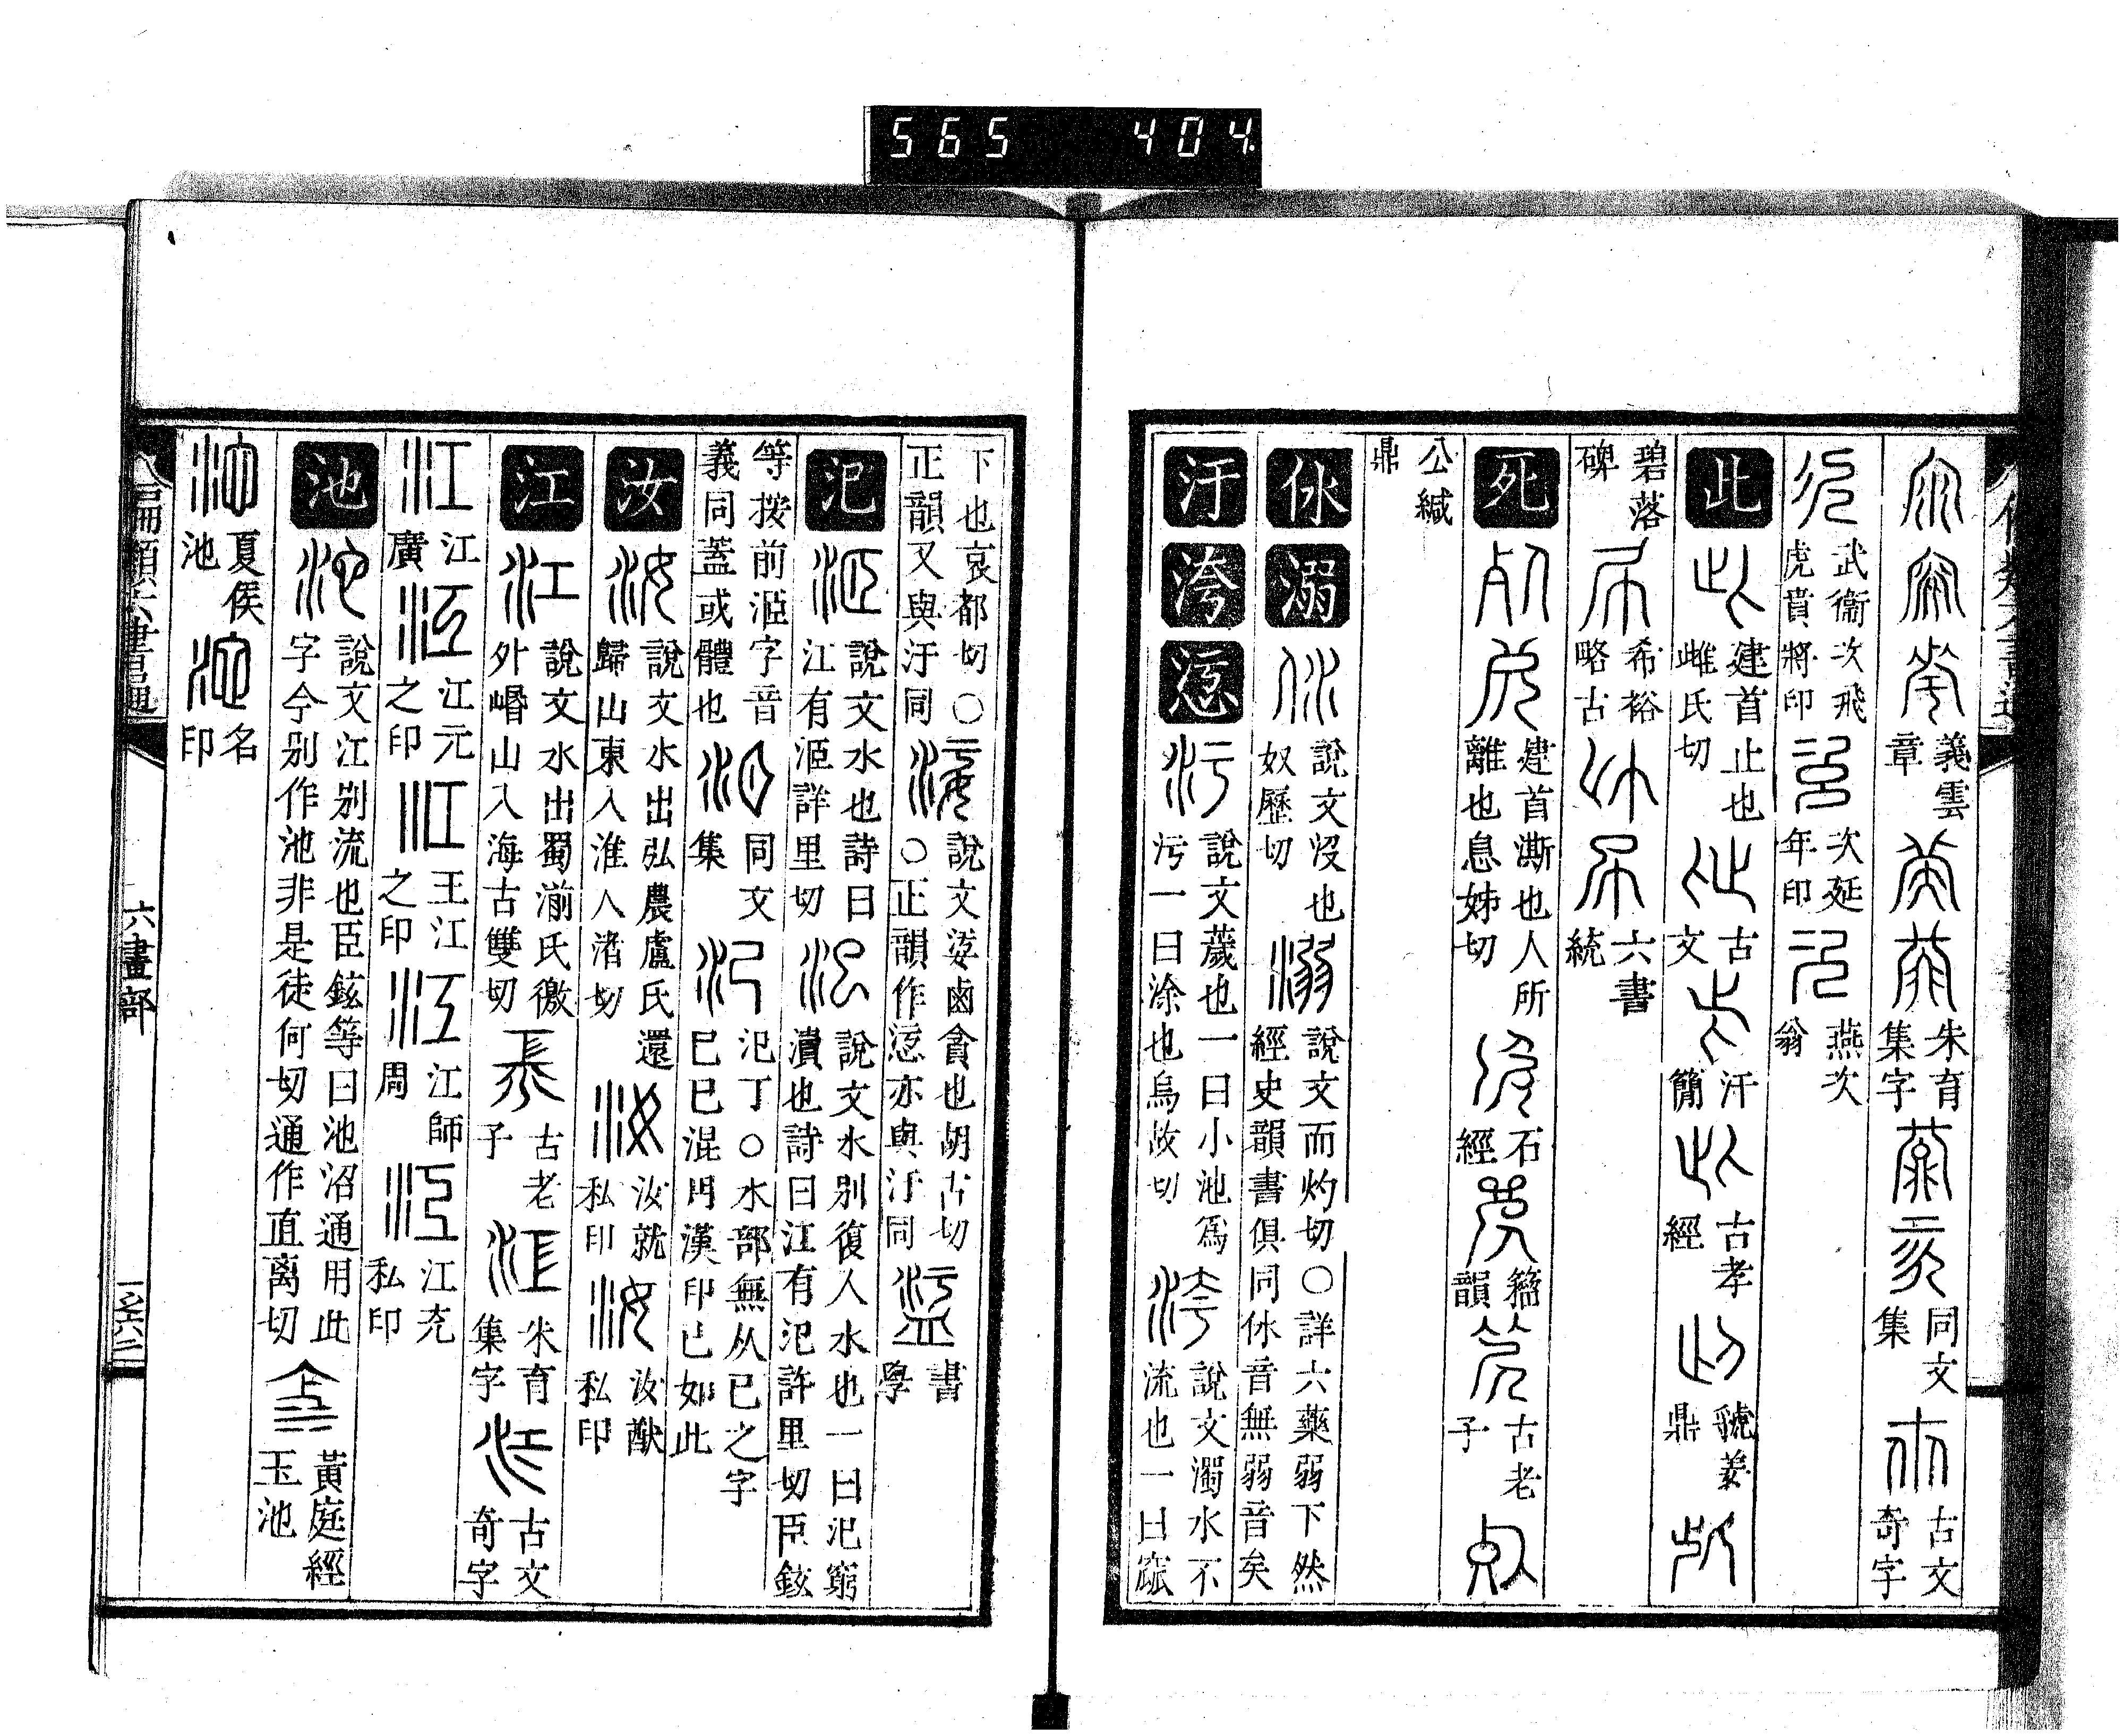 565 404.
義雲
章
朱育
集字
同文
集
古文
奇字
武衞次飛
虎賁將印
次延
年印
燕次
翁
此
建首止也
雌氏切
古
文
汗
簡
古孝
經
虢姜
鼎
碧落
碑
希裕
略古
六書
統
死
建首澌也人所
離也息姊切
石
經
籀
韻
古老
子
公緘
鼎
休 溺
說文沒也
奴歷切
說文而灼切○詳六藥弱下然
經史韻書俱同休音無弱音矣
汙 洿 㤿
說文薉也一曰小池爲
污一曰涂也烏故切
說文濁水不
流也一曰窳
下也哀都切○
正韻又與汙同
說文婪鹵貪也胡古切
○正韻作㤿亦與汙同
書
學
汜
說文水也詩曰
江有洍詳里切
說文水別復入水也一曰汜窮
瀆也詩曰江有汜詳里切臣鉉
等按前洍字音
義同蓋或體也
同文
集
汜丁○水部無从已之字
巳已混用漢印已如此
汝
說文水出弘農盧氏還
歸山東入淮人渚切
汝就
私印
汝猷
私印
江
說文水出蜀湔氏徼
外㟭山入海古雙切
古老
子
朱育
集字
古文
奇字
江
廣
江元
之印
王江
之印
江師
周
江充
私印
池
說文江別流也臣鉉等曰池沼通用此
字今別作池非是徒何切通作直离切
黃庭經
玉池
夏侯
池
名
印
六畫部